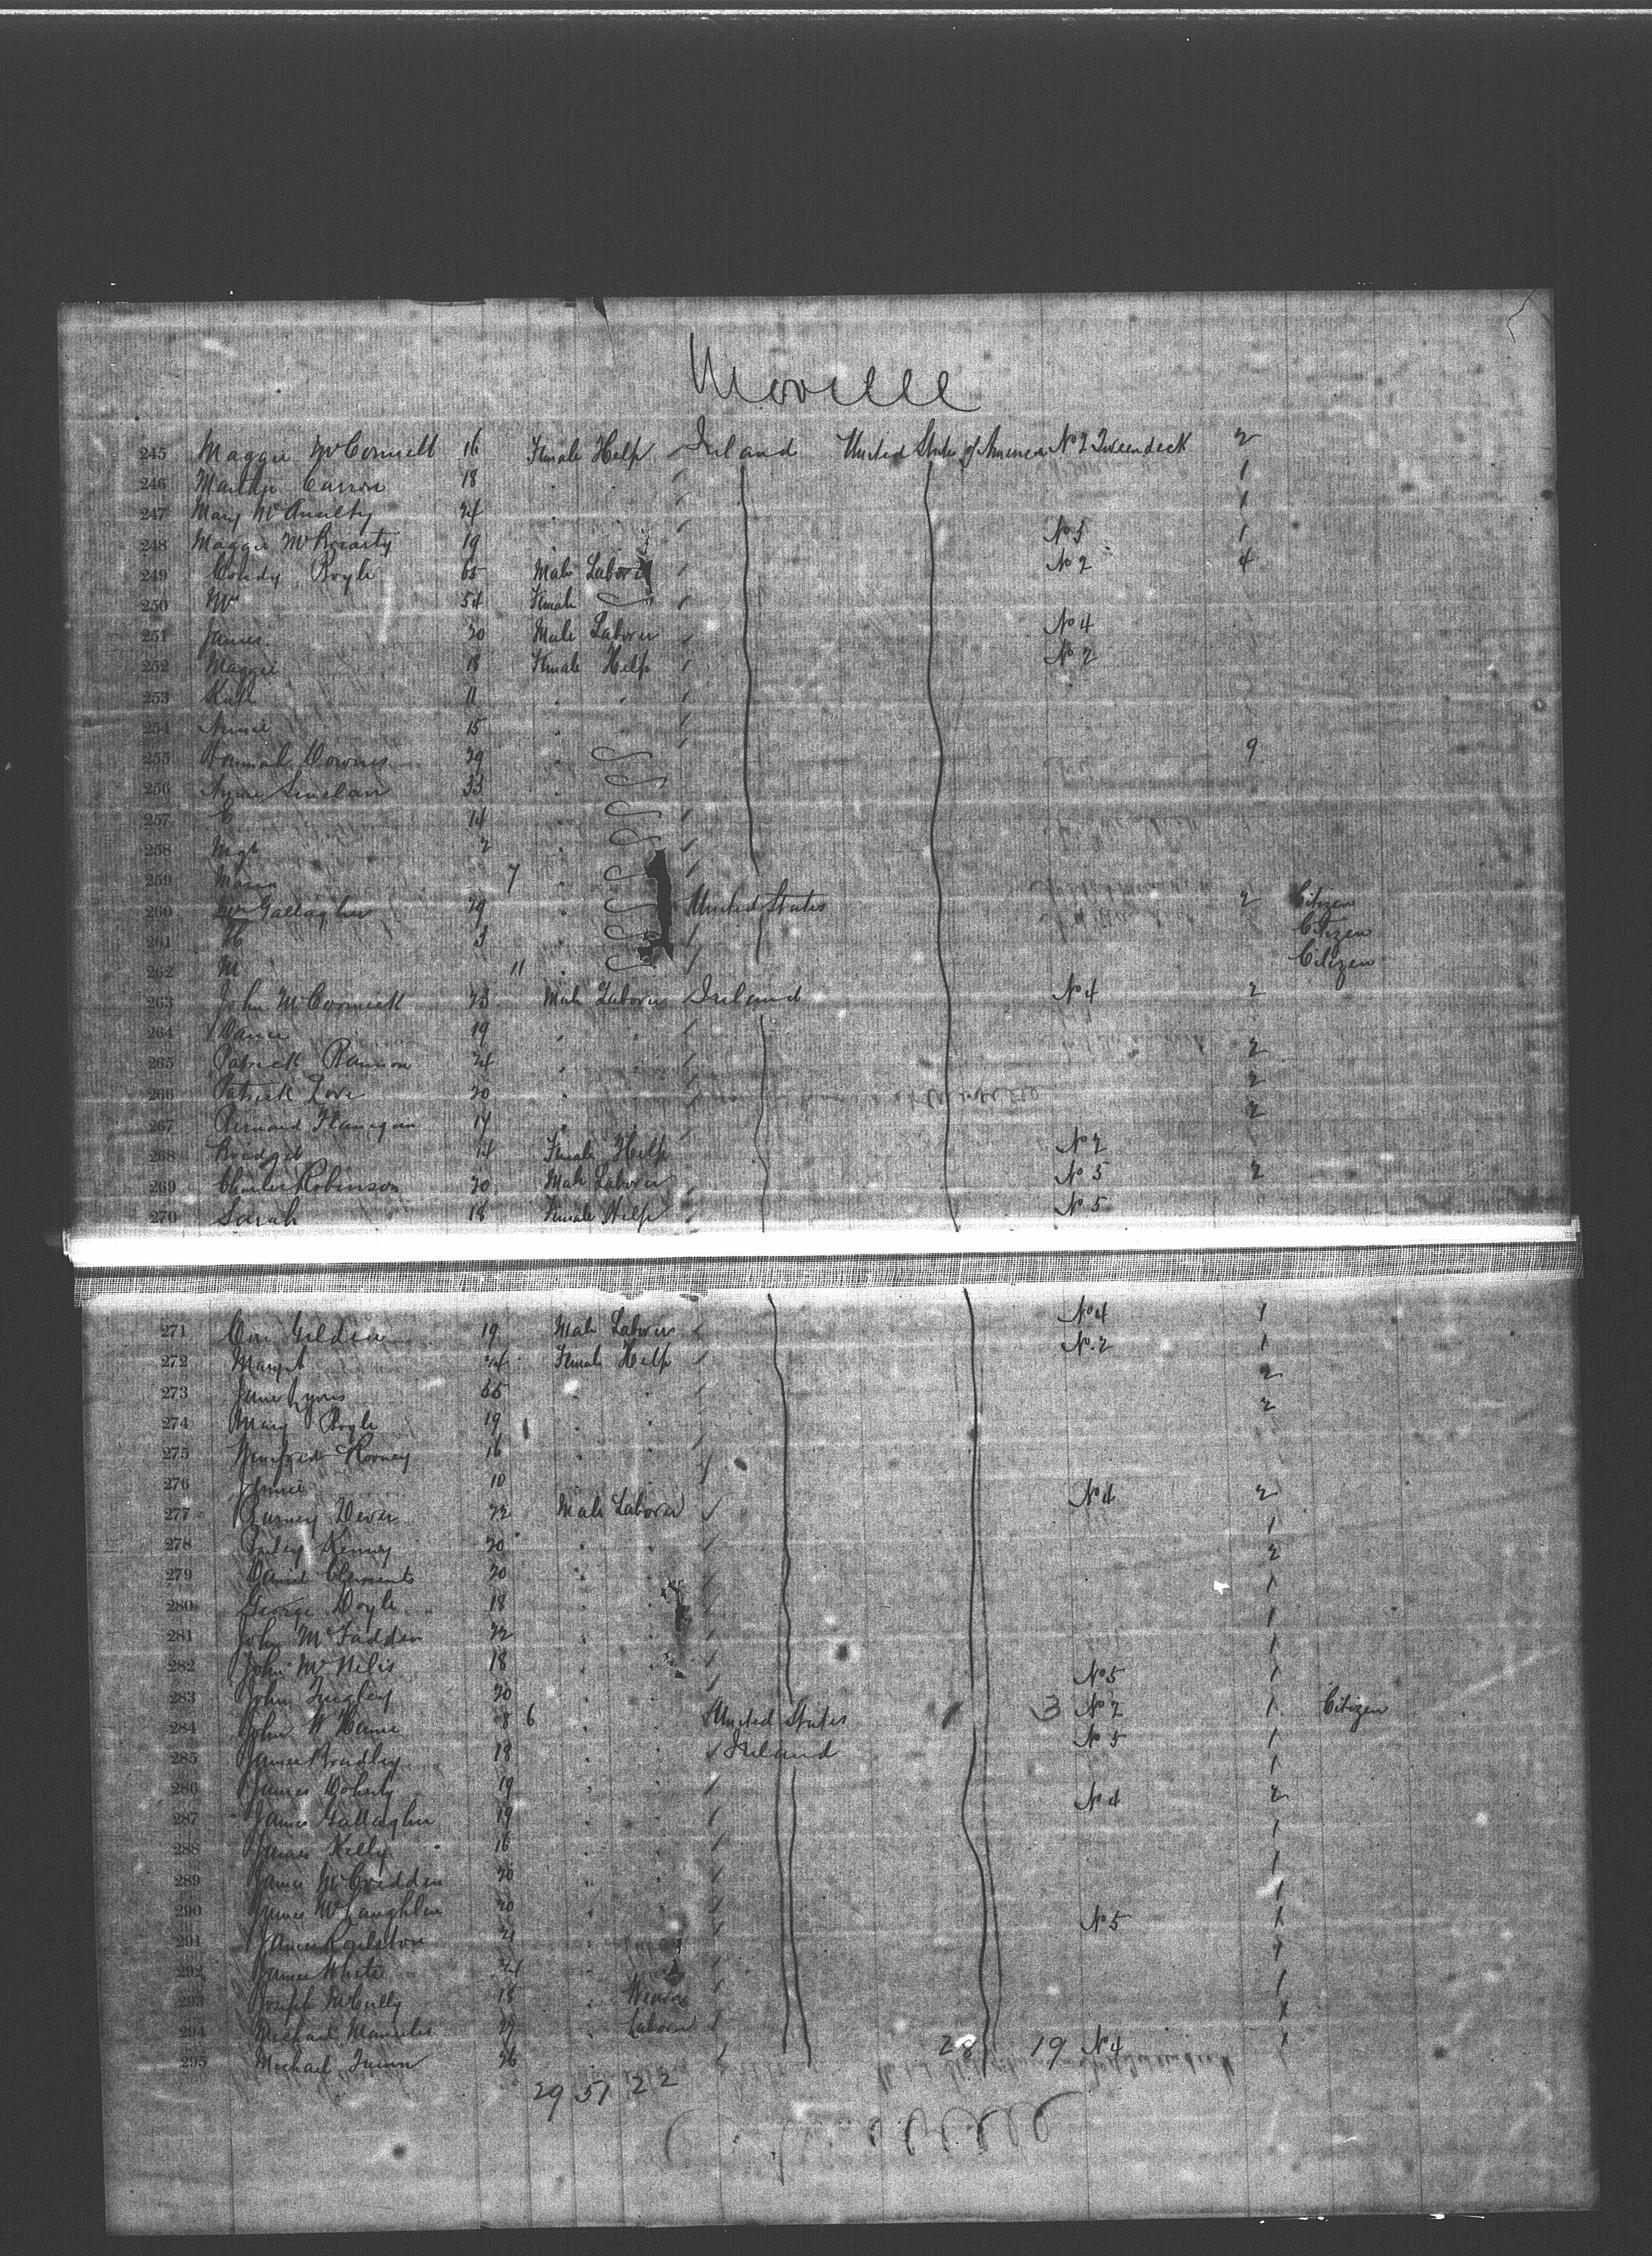 Moville
245 Maggie McConnell 16 Female Help Ireland United States of America No 2 Tweendeck 2
246 Carron 18 1
247 Mary McAnulty 24 1
248 Maggie McBrearty 19 No 5 1
249 Condy Boyle 65 Male Laborer No 2 4
250 Mrs 54 Female
251 James 20 Male Laborer No 4
252 Maggie 18 Female Help No 2
253 Kate 11
254 Annie 15
255 Hannah Downes 29 9
256 Annie Sinclair 33
257 C 14
258 Mgt 2
259 Maria 7
260 Mrs Gallagher 29 United States 2 Citizen
261 H 3 Citizen
262 M 11 Citizen
263 John McCormick 23 Male Laborer Ireland No 4 2
264 Daniel 19
265 Patrick Bannon 24 2
266 Patrick Love 20 2
267 Bernard Flanigan 17 2
268 Bridget 14 Female Help No 2
269 Charles Robinson 20 Male Laborer No 5 2
270 Sarah 18 Female Help No 5
271 Con Gildea 19 Male Laborer No 4 1
272 Mary A 24 Female Help No. 2 1
273 Jane Lyons 35 2
274 Mary Boyle 19 2
275 Hooney 16
276 Jennie 10
277 Barney Dever 22 Male Laborer No 4 2
278 Kenney 20 1
279 David Clements 20 2
280 George Doyle 18 1
281 John McFadden 22 1
282 John McNelis 18 1
283 John 20 No 5 1
284 John 8 6 United States 3 No 2 1 Citizen
285 James Bradley 18 Ireland No 5 1
286 James Doherty 19 1
287 James Gallagher 19 No 4 2
288 James Kelly 16 1
289 James McCredden 20 1
290 James McLaughlin 20 1
291 James 21 No 5 1
292 James White 24 1
293 Joseph McCully 18 Weaver 1
294 Michael 27 Laborer 1
295 Michael Quinn 26 28 19 No 4 1
29 51 22